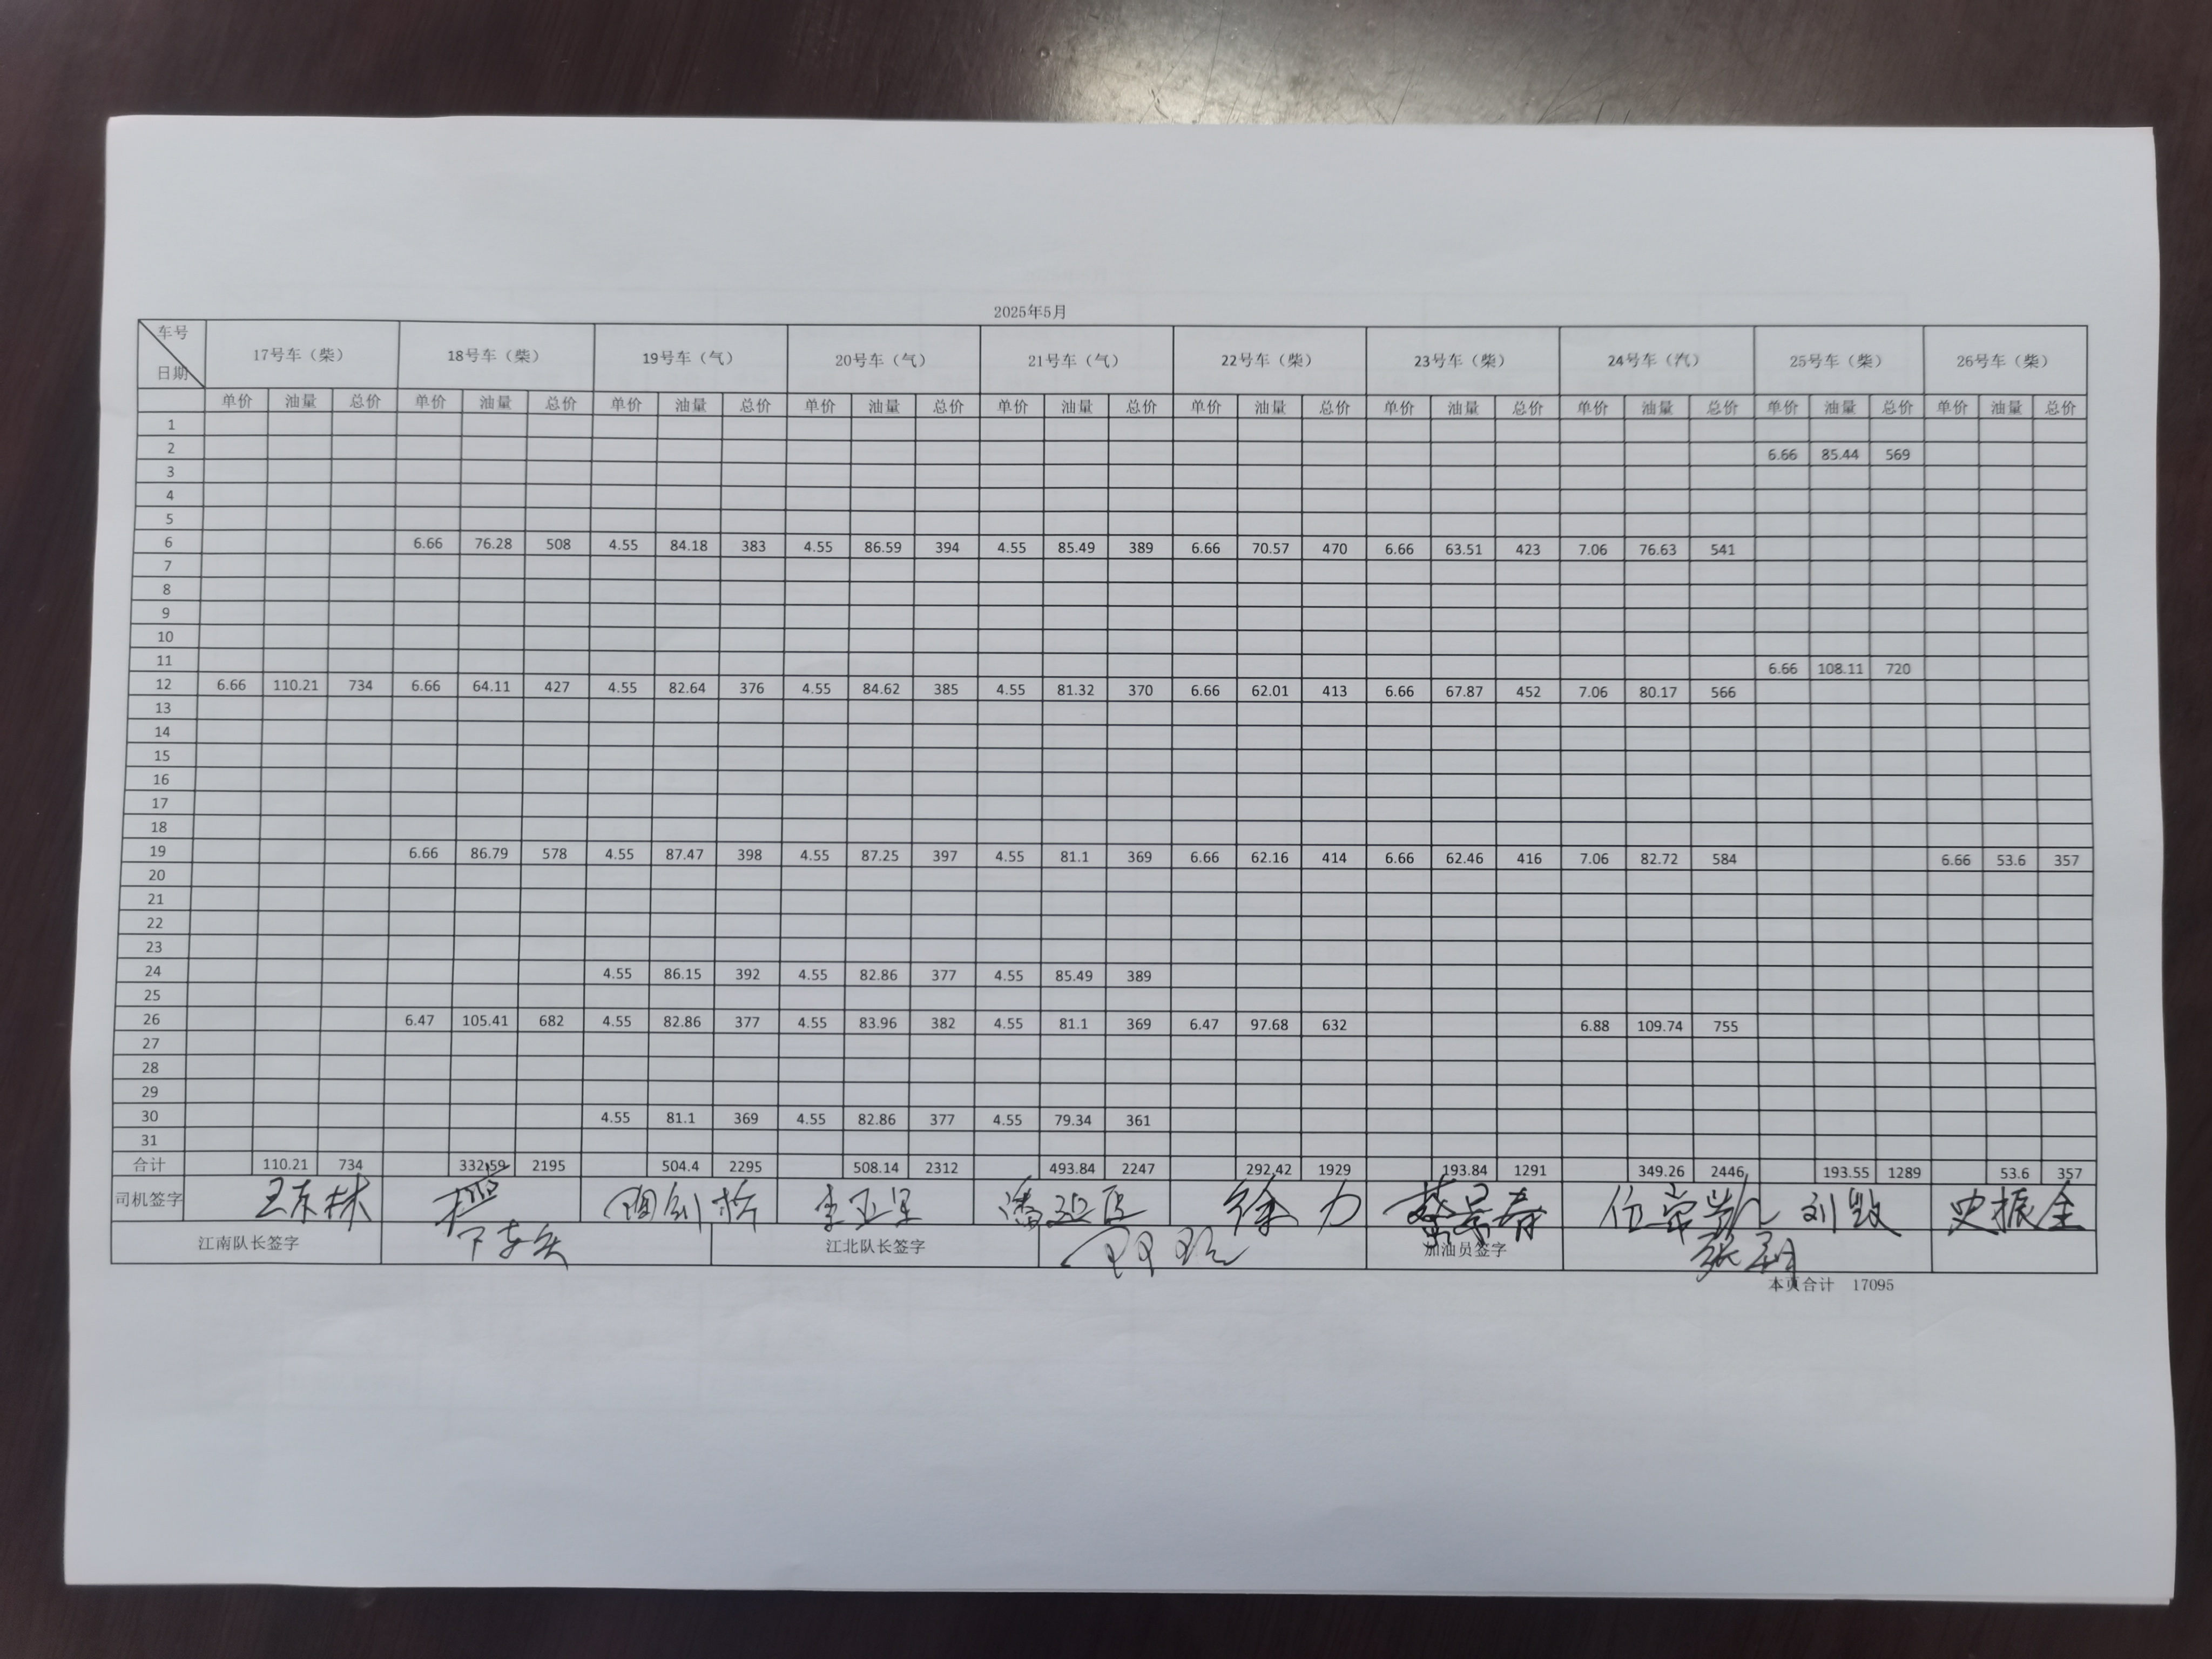 2025年5月
车号 17号车（柴） 18号车（柴） 19号车（气） 20号车（气） 21号车（气） 22号车（柴） 23号车（柴） 24号车（汽） 25号车（柴） 26号车（柴）
日期
单价 油量 总价 单价 油量 总价 单价 油量 总价 单价 油量 总价 单价 油量 总价 单价 油量 总价 单价 油量 总价 单价 油量 总价 单价 油量 总价 单价 油量 总价
1
2 6.66 85.44 569
3
4
5
6 6.66 76.28 508 4.55 84.18 383 4.55 86.59 394 4.55 85.49 389 6.66 70.57 470 6.66 63.51 423 7.06 76.63 541
7
8
9
10
11 6.66 108.11 720
12 6.66 110.21 734 6.66 64.11 427 4.55 82.64 376 4.55 84.62 385 4.55 81.32 370 6.66 62.01 413 6.66 67.87 452 7.06 80.17 566
13
14
15
16
17
18
19 6.66 86.79 578 4.55 87.47 398 4.55 87.25 397 4.55 81.1 369 6.66 62.16 414 6.66 62.46 416 7.06 82.72 584 6.66 53.6 357
20
21
22
23
24 4.55 86.15 392 4.55 82.86 377 4.55 85.49 389
25
26 6.47 105.41 682 4.55 82.86 377 4.55 83.96 382 4.55 81.1 369 6.47 97.68 632 6.88 109.74 755
27
28
29
30 4.55 81.1 369 4.55 82.86 377 4.55 79.34 361
31
合计 110.21 734 332.59 2195 504.4 2295 508.14 2312 493.84 2247 292.42 1929 193.84 1291 349.26 2446 193.55 1289 53.6 357
司机签字 王东林 徐力 史振全
江南队长签字 江北队长签字 加油员签字
本页合计 17095